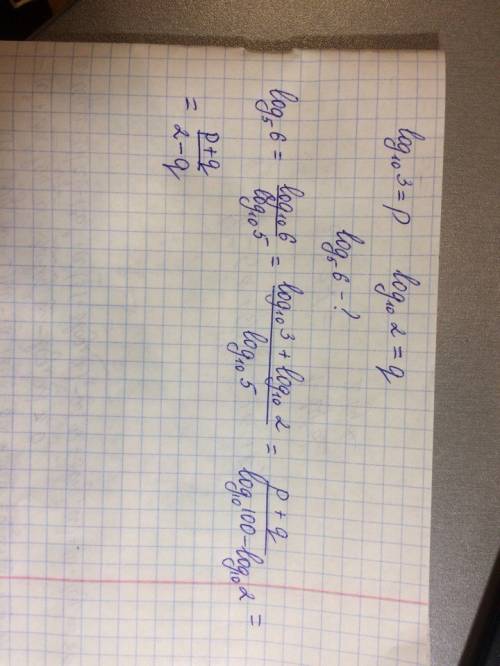 log₁₀ 3 = p log₁₀ 2 = q
log₅ 6 - ?
log₅ 6 = log₁₀ 6 / log₁₀ 5 = (log₁₀ 3 + log₁₀ 2) / log₁₀ 5 = (p + q) / (log₁₀ 100 - log₁₀ 2) =
= (p + q) / (2 - q)